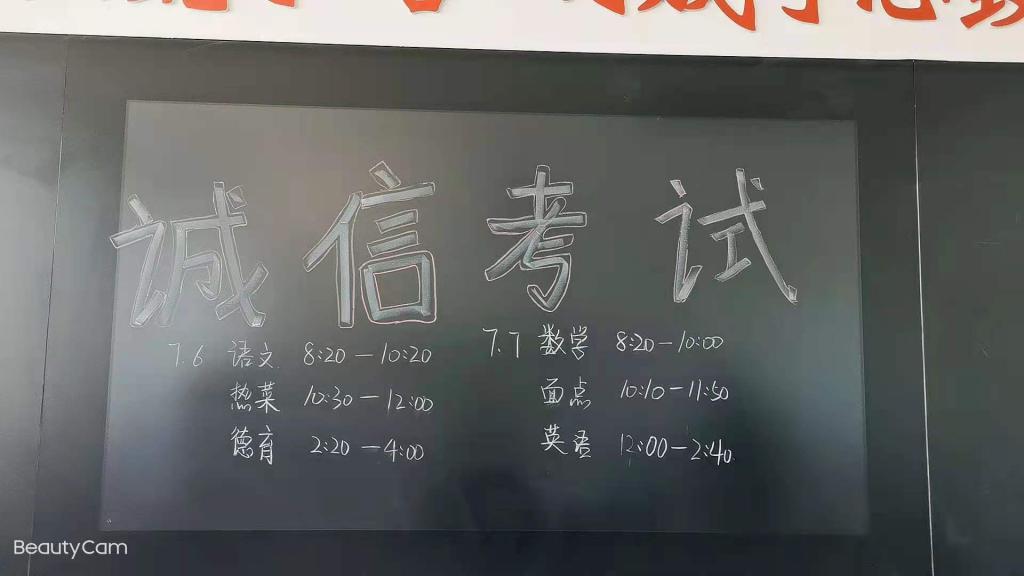 诚信考试
7.6 语文 8:20—10:20
热菜 10:30—12:00
德育 2:20—4:00
7.7 数学 8:20—10:00
面点 10:10—11:50
英语 12:00—2:40
BeautyCam